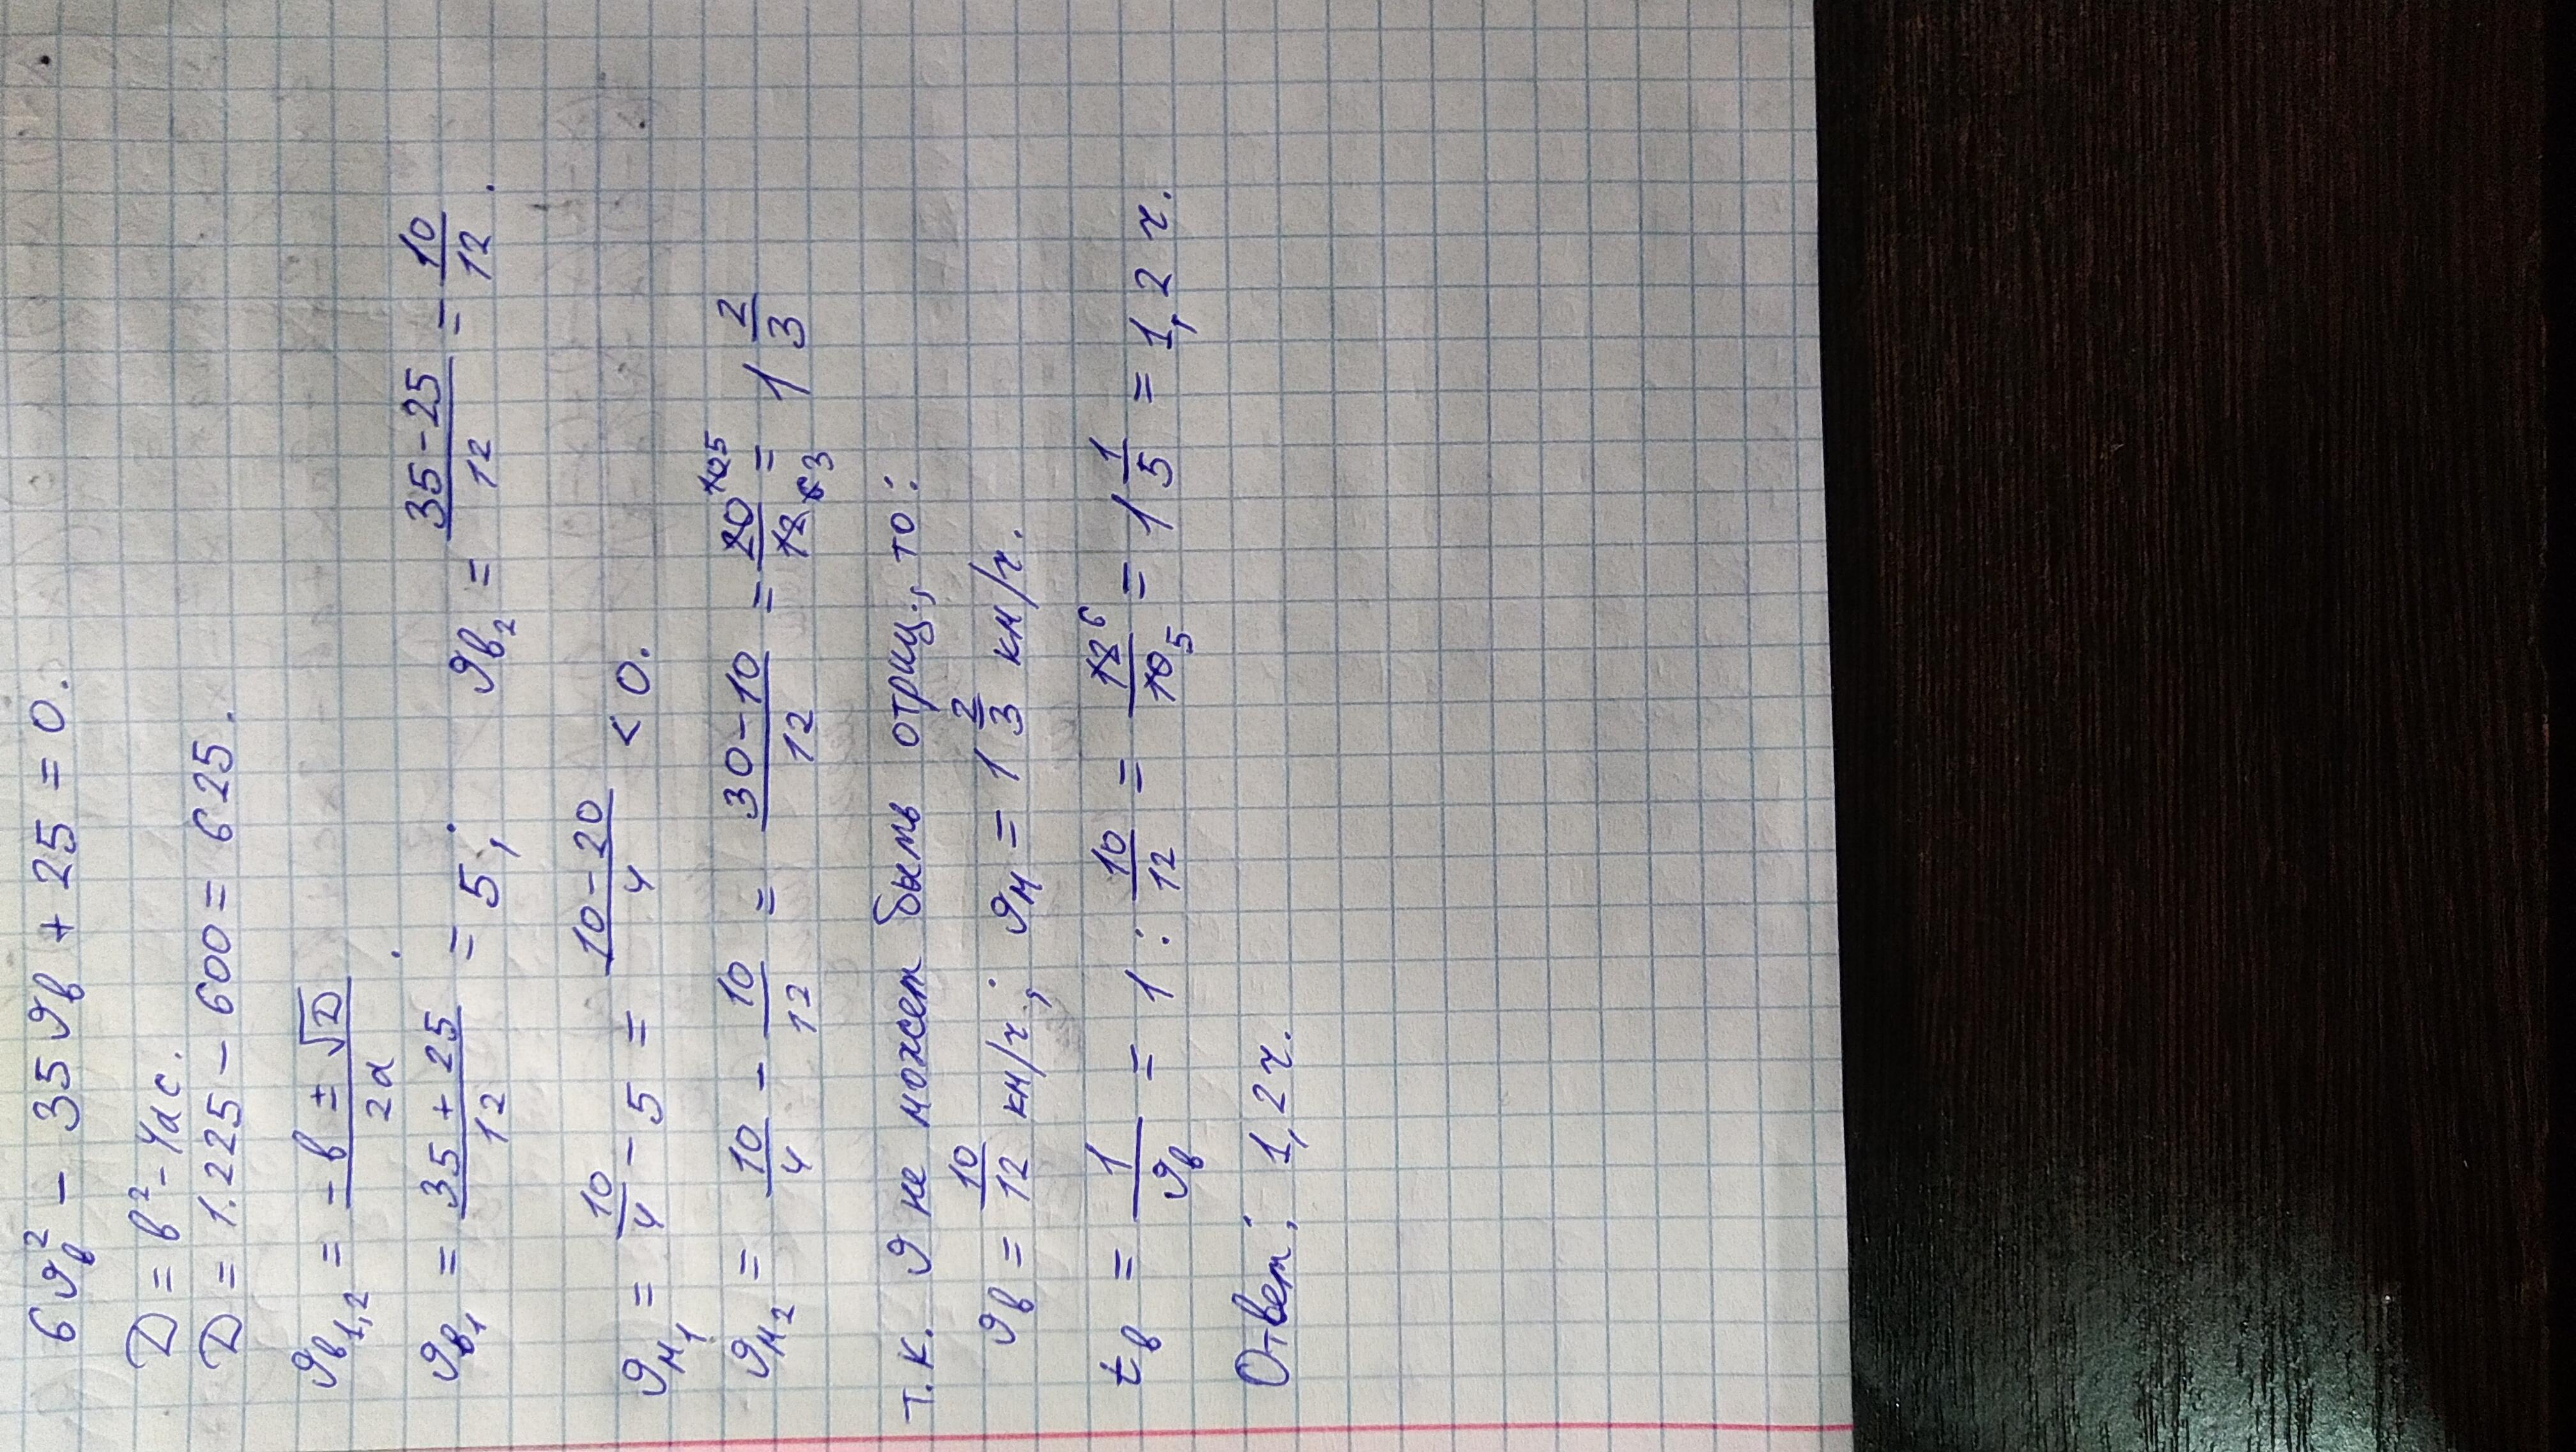 6ϑв² - 35ϑв + 25 = 0.
D = в² - 4ac.
D = 1.225 - 600 = 625.
ϑв₁,₂ = (-в ± √D)/(2a).
ϑв₁ = (35 + 25)/12 = 5; ϑв₂ = (35 - 25)/12 = 10/12.
ϑм₁ = 10/4 - 5 = (10 - 20)/4 < 0.
ϑм₂ = 10/4 - 10/12 = (30 - 10)/12 = 20/12 10/6 5/3 = 1 2/3
т.к. ϑ не может быть отриц., то:
ϑв = 10/12 км/ч; ϑм = 1 2/3 км/ч.
tв = 1/ϑв = 1 : 10/12 = 12/10 6/5 = 1 1/5 = 1,2 ч.
Ответ: 1,2 ч.